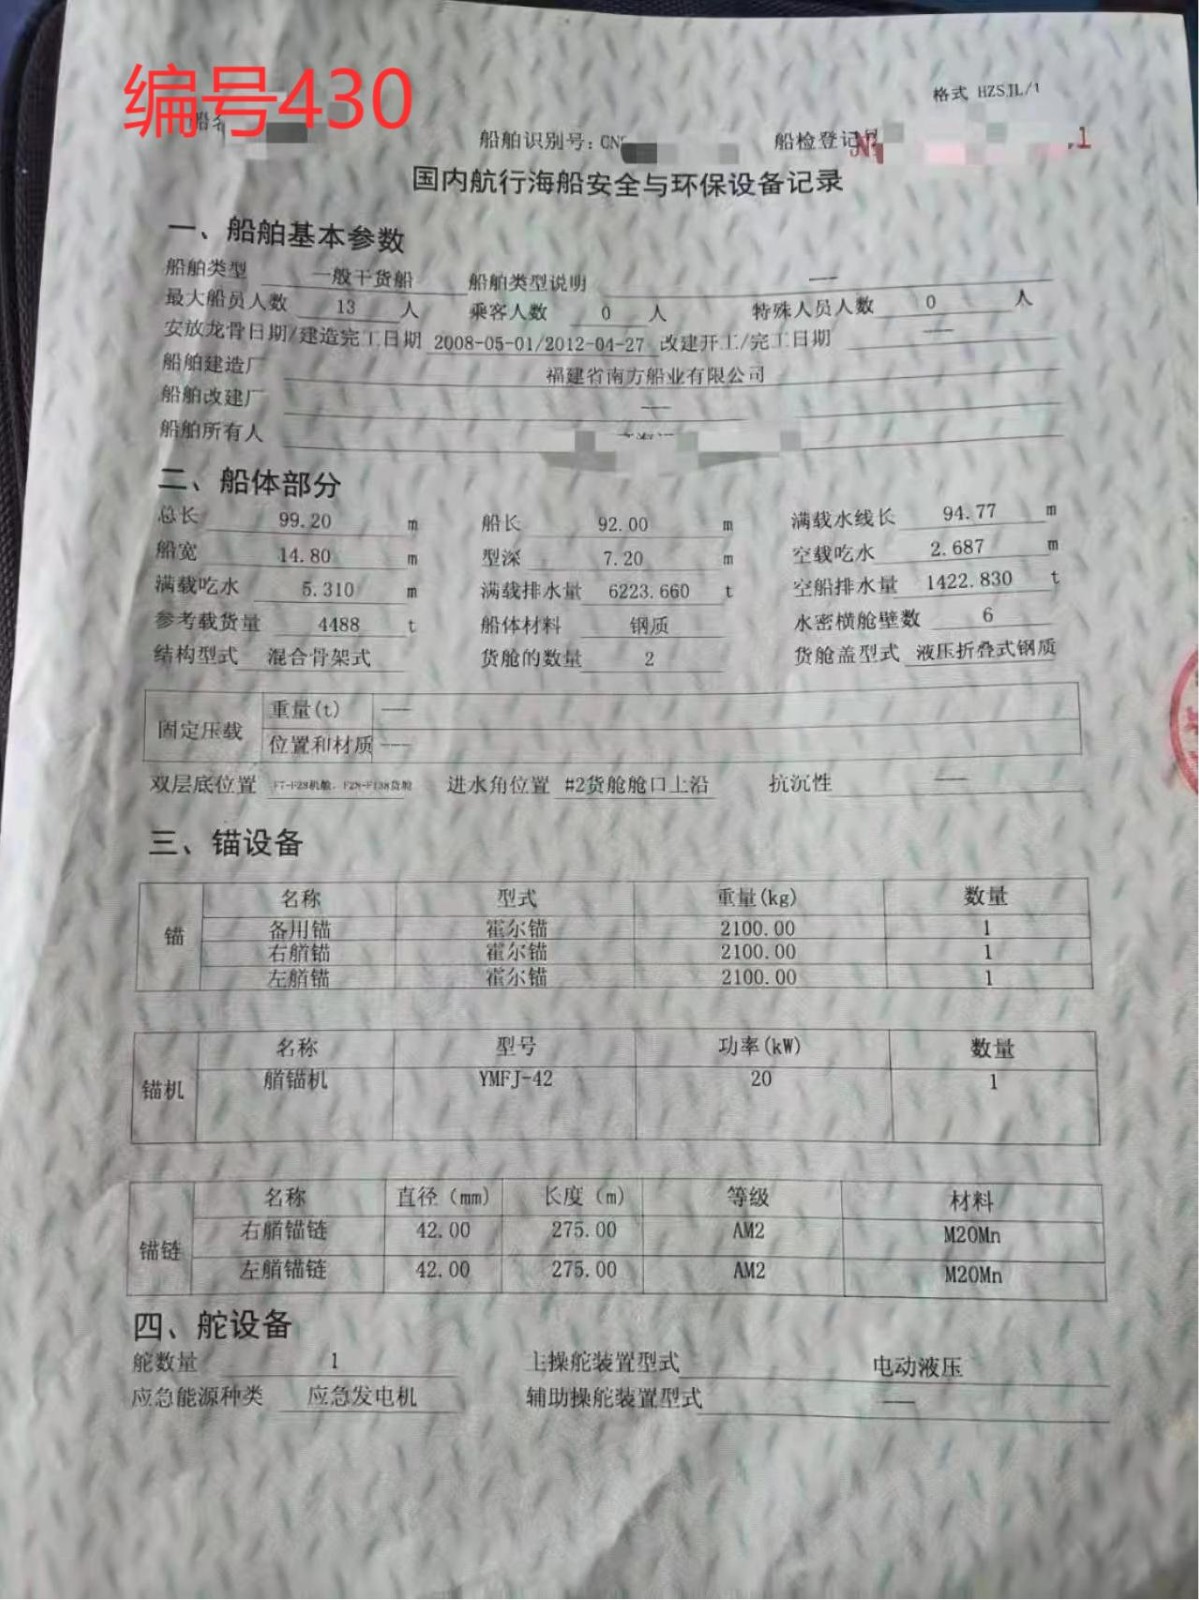 编号430
格式 HZSJL/1
船名
船舶识别号：CN
船检登记号
国内航行海船安全与环保设备记录
一、船舶基本参数
船舶类型 一般干货船 船舶类型说明 ——
最大船员人数 13 人 乘客人数 0 人 特殊人员人数 0 人
安放龙骨日期/建造完工日期 2008-05-01/2012-04-27 改建开工/完工日期 ——
船舶建造厂 福建省南方船业有限公司
船舶改建厂 ——
船舶所有人
二、船体部分
总长 99.20 m 船长 92.00 m 满载水线长 94.77 m
船宽 14.80 m 型深 7.20 m 空载吃水 2.687 m
满载吃水 5.310 m 满载排水量 6223.660 t 空船排水量 1422.830 t
参考载货量 4488 t 船体材料 钢质 水密横舱壁数 6
结构型式 混合骨架式 货舱的数量 2 货舱盖型式 液压折叠式钢质
固定压载 重量(t) ——
位置和材质 ——
双层底位置 进水角位置 #2货舱舱口上沿 抗沉性 ——
三、锚设备
锚 名称 型式 重量(kg) 数量
备用锚 霍尔锚 2100.00 1
右艏锚 霍尔锚 2100.00 1
左艏锚 霍尔锚 2100.00 1
锚机 名称 型号 功率(kW) 数量
艏锚机 YMFJ-42 20 1
锚链 名称 直径（mm） 长度（m） 等级 材料
右艏锚链 42.00 275.00 AM2 M20Mn
左艏锚链 42.00 275.00 AM2 M20Mn
四、舵设备
舵数量 1 主操舵装置型式 电动液压
应急能源种类 应急发电机 辅助操舵装置型式 ——